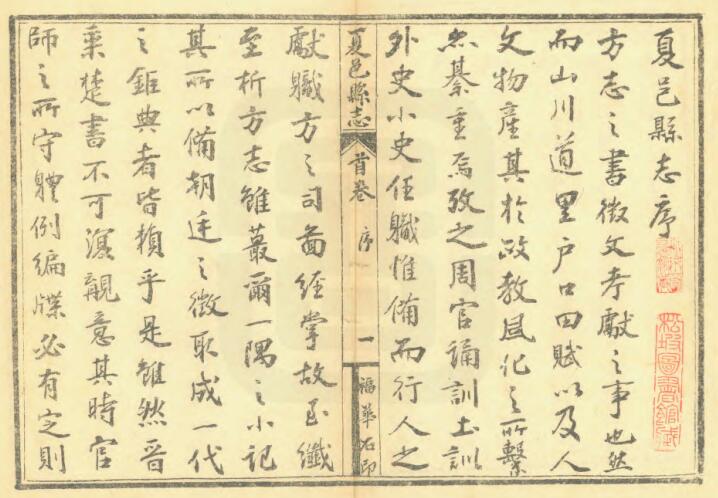 夏邑縣志序
方志之書徵文考獻之事也然
而山川道里户口田賦以及人
文物產其於政教風化之所繫
㤀綦重焉攷之周官誦訓土訓
外史小史任職惟備而行人之
夏邑縣志
首卷
序
一
福華石印
獻職方之司圖經掌故至纖
至析方志雖蕞爾一隅之小記
其所以備朝廷之徵取成一代
之鉅典者皆賴乎是雖然晉
乗楚書不可深觀意其時官
師之所守體例編牒必有定則
松坡圖書館藏